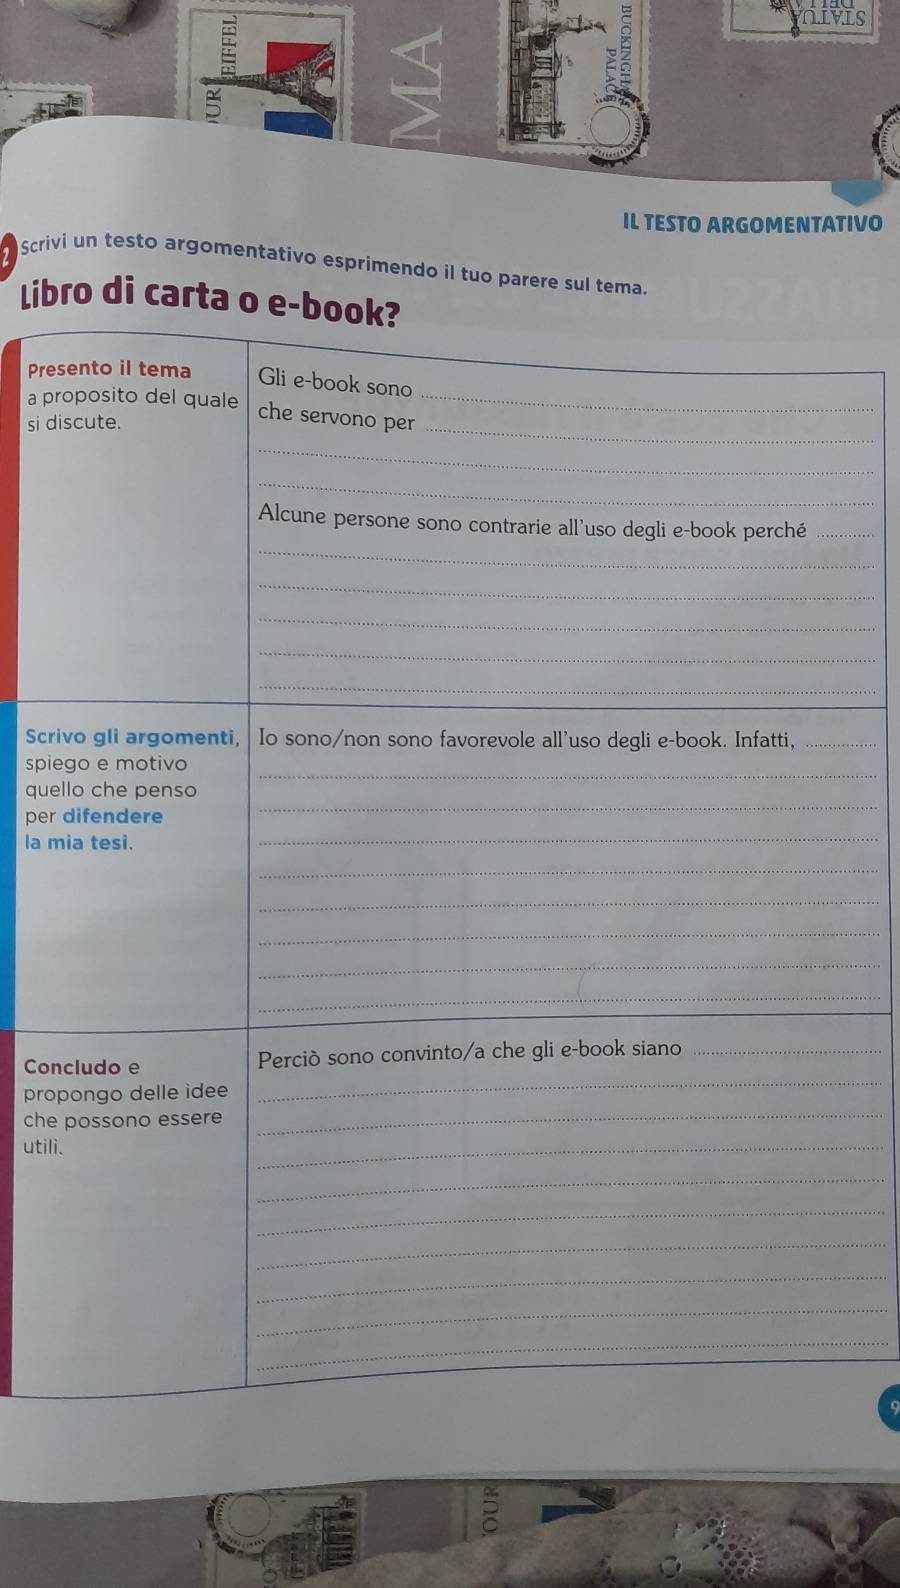 UR EIFFEL
MA
PALAC
STATUA
DELLA
IL TESTO ARGOMENTATIVO
2 Scrivi un testo argomentativo esprimendo il tuo parere sul tema.
Libro di carta o e-book?
Presento il tema
a proposito del quale
si discute.
Gli e-book sono
che servono per
Alcune persone sono contrarie all'uso degli e-book perché
Scrivo gli argomenti,
spiego e motivo
quello che penso
per difendere
la mia tesi.
Io sono/non sono favorevole all'uso degli e-book. Infatti,
Concludo e
propongo delle idee
che possono essere
utili.
Perciò sono convinto/a che gli e-book siano
9
OUR